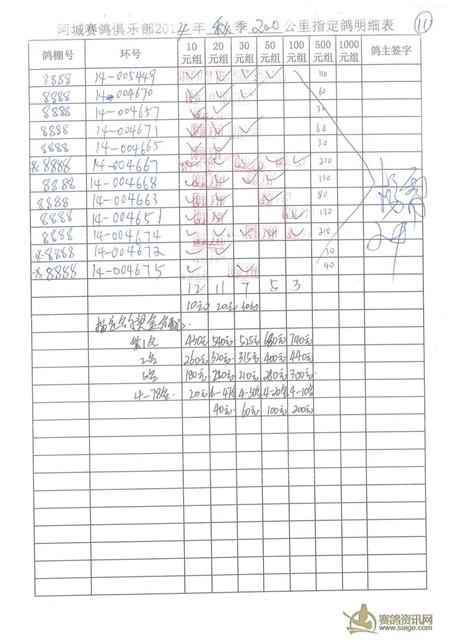 阿城赛鸽俱乐部2014年秋季200公里指定鸽明细表 11
鸽棚号 环号 10元组 20元组 30元组 50元组 100元组 500元组 1000元组 鸽主签字
8888 14-005449 ✓ ✓ ✓ ✓ 110
8888 14-004670 ✓ ✓ ✓ 60
8888 14-004657 ✓ ✓ 30
8888 14-004671 ✓ ✓ ✓ 60
8888 14-004665 ✓ ✓ 30
*8888 14-004667 ✓ ✓ ✓ ✓ ✓ 210
8888 14-004668 ✓ ✓ ✓ ✓ 110
8888 14-004663 ✓ ✓ ✓ 80
8888 14-004651 ✓ ✓ ✓ 130
8888 14-004674 ✓ ✓ ✓ ✓ ✓ 210
*8888 14-004672 ✓ ✓ 30
*8888 14-004675 ✓ ✓ 40
12 11 7 5 3
10元 20元 30元
指定名次奖金
第1名 430元 540元 525元 680元 740元
2名 260元 320元 315元 400元 440元
3名 180元 210元 280元 300元
4-78名 20元 4-47名 4-20名 4-10名
40元 60元 100元 200元
赛鸽资讯网
www.saige.com